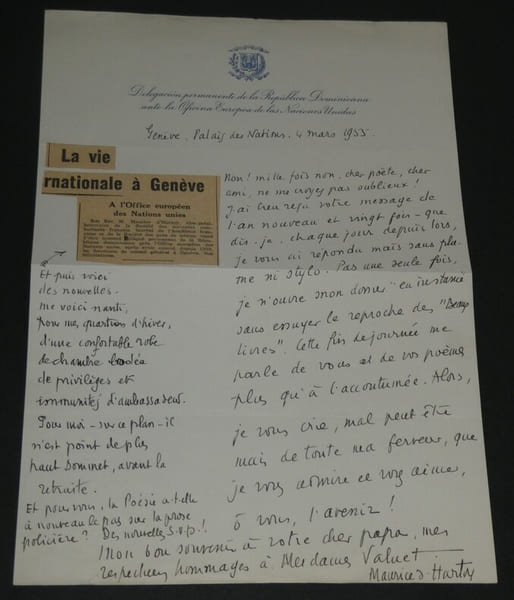 Delegación permanente de la República Dominicana
ante la Oficina Europea de las Naciones Unidas
Genève. Palais des Nations. 4 mars 1955
La vie
rnationale à Genève
A l'Office européen
des Nations unies
Non! mille fois non, cher poète, cher
ami, ne me croyez pas oublieux!
J'ai bien reçu votre message de
l'an nouveau et vingt fois - que
dis-je, chaque jour depuis lors,
je vous ai répondu mais sans plu-
me ni stylo. Pas une seule fois,
je n'ouvre mon dossier "en instance"
sans essuyer le reproche des "Beaux
livres". Cette fin de journée me
parle de vous et de vos poèmes
plus qu'à l'accoutumée. Alors,
je vous crie, mal peut être
mais de toute ma ferveur, que
je vous admire et vous aime,
ô vous, l'avenir!
Mon bon souvenir à votre cher papa, mes
respectueux hommages à Mesdames Valuet.
Maurice d'Hartoy
Et puis voici
des nouvelles.
me voici nanti,
pour mes quartiers d'hiver,
d'une confortable robe
de chambre brodée
de privilèges et
immunités d'ambassadeur.
Pour moi - sur ce plan - il
n'est point de plus
haut sommet, avant la
retraite.
Et pour vous, la Poésie a-t-elle
à nouveau le pas sur la prose
policière? Des nouvelles S.V.P.!